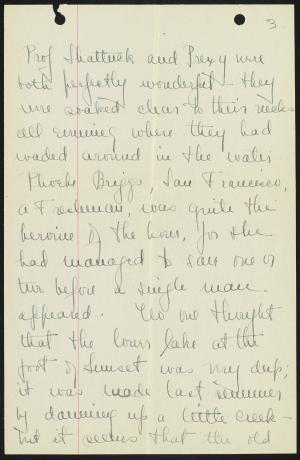 3
Prof Shattuck and Prexy were
both perfectly wonderful - they
were soaked clear to their necks
all evening where they had
waded around in the water
Phoebe Briggs, San Francisco,
a Freshman, was quite the
heroine of the hour, for she
had managed to save one or
two before a single man
appeared. No one thought
that the lower lake at the
foot of Sunset was very deep;
it was made last summer
by damming up a little creek -
but it seems that the old